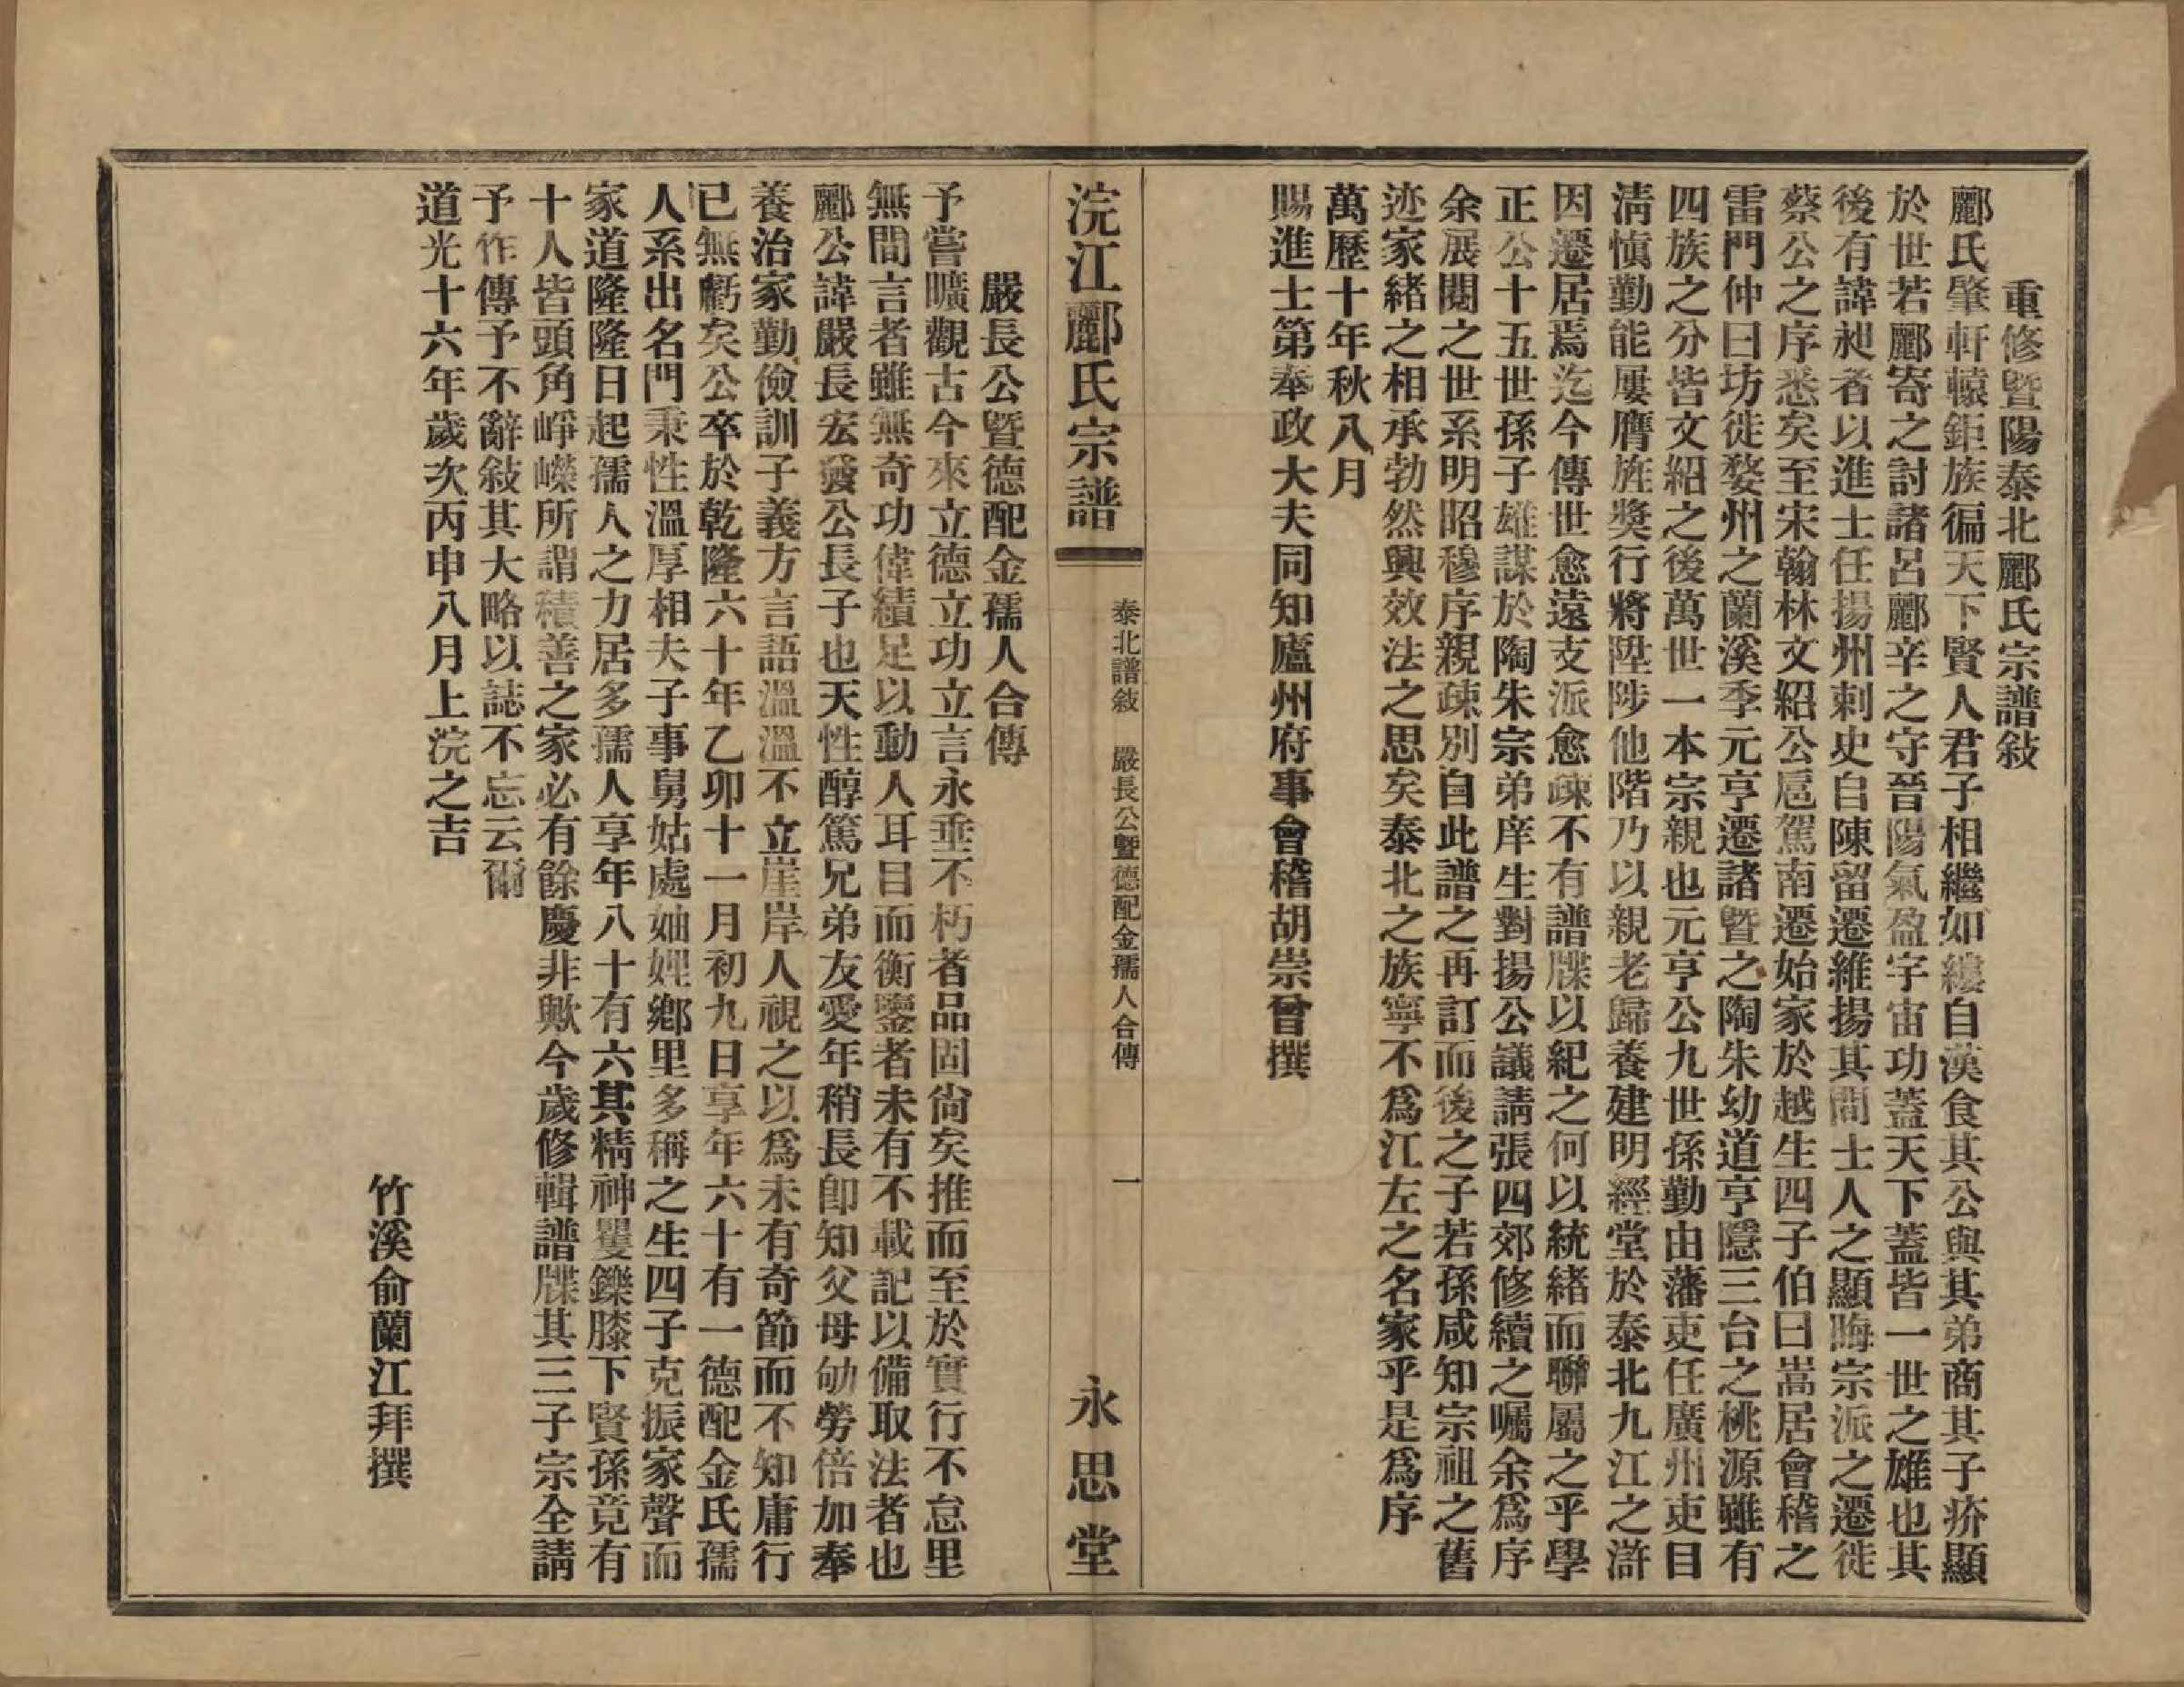 重修暨陽泰北酈氏宗譜敍
酈氏肇軒轅鉅族徧天下賢人君子相繼如縷自漢食其公與其弟商其子疥顯
於世若酈寄之討諸呂酈辛之守晉陽氣盈宇宙功蓋天下蓋皆一世之雄也其
後有諱昶者以進士任揚州刺史自陳留遷維揚其間士人之顯晦宗派之遷徙
蔡公之序悉矣至宋翰林文紹公扈駕南遷始家於越生四子伯曰嵩居會稽之
雷門仲曰坊徙婺州之蘭溪季元亨遷諸暨之陶朱幼道亨隱三台之桃源雖有
四族之分皆文紹之後萬世一本宗親也元亨公九世孫勤由藩吏任廣州吏目
淸愼勤能屢膺旌獎行將陞陟他階乃以親老歸養建明經堂於泰北九江之滸
因遷居焉迄今傳世愈遠支派愈疎不有譜牒以紀之何以統緒而聯屬之乎學
正公十五世孫子雄謀於陶朱宗弟庠生對揚公議請張四郊修續之囑余爲序
余展閱之世系明昭穆序親疎別自此譜之再訂而後之子若孫咸知宗祖之舊
迹家緒之相承勃然興效法之思矣泰北之族寧不爲江左之名家乎是爲序
萬歷十年秋八月
賜進士第奉政大夫同知廬州府事會稽胡崇曾撰
浣江酈氏宗譜
泰北譜敍　嚴長公暨德配金孺人合傳
一
永思堂
嚴長公暨德配金孺人合傳
予嘗曠觀古今來立德立功立言永垂不朽者品固尙矣推而至於實行不怠里
無間言者雖無奇功偉績足以動人耳目而衡鑒者未有不載記以備取法者也
酈公諱嚴長宏發公長子也天性醇篤兄弟友愛年稍長卽知父母劬勞倍加奉
養治家勤儉訓子義方言語溫溫不立崖岸人視之以爲未有奇節而不知庸行
已無虧矣公卒於乾隆六十年乙卯十一月初九日享年六十有一德配金氏孺
人系出名門秉性溫厚相夫子事舅姑處妯娌鄕里多稱之生四子克振家聲而
家道隆隆日起孺人之力居多孺人享年八十有六其精神矍鑠膝下賢孫竟有
十人皆頭角崢嶸所謂積善之家必有餘慶非歟今歲修輯譜牒其三子宗全請
予作傳予不辭敍其大略以誌不忘云爾
道光十六年歲次丙申八月上浣之吉
竹溪俞蘭江拜撰